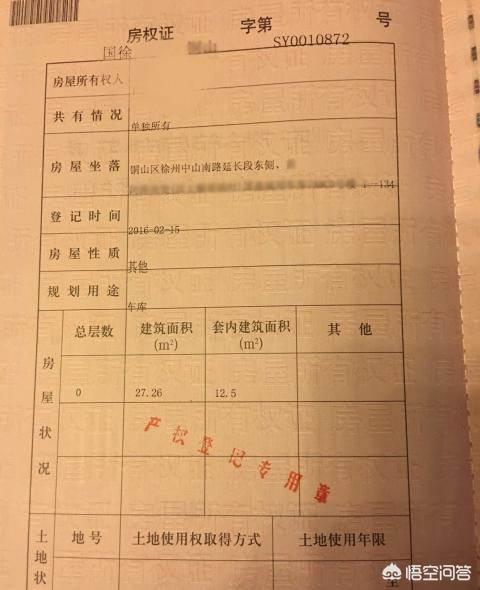 房权证 字第 号
国徐 山 SY0010872
房屋所有权人
共有情况
单独所有
房屋坐落
铜山区徐州中山南路延长段东侧、
-134
登记时间
2016-02-15
房屋性质
其他
规划用途
车库
房屋状况
总层数 建筑面积(m²) 套内建筑面积(m²) 其他
0 27.26 12.5
产权登记专用章
土地状
地号 土地使用权取得方式 土地使用年限
至
悟空问答